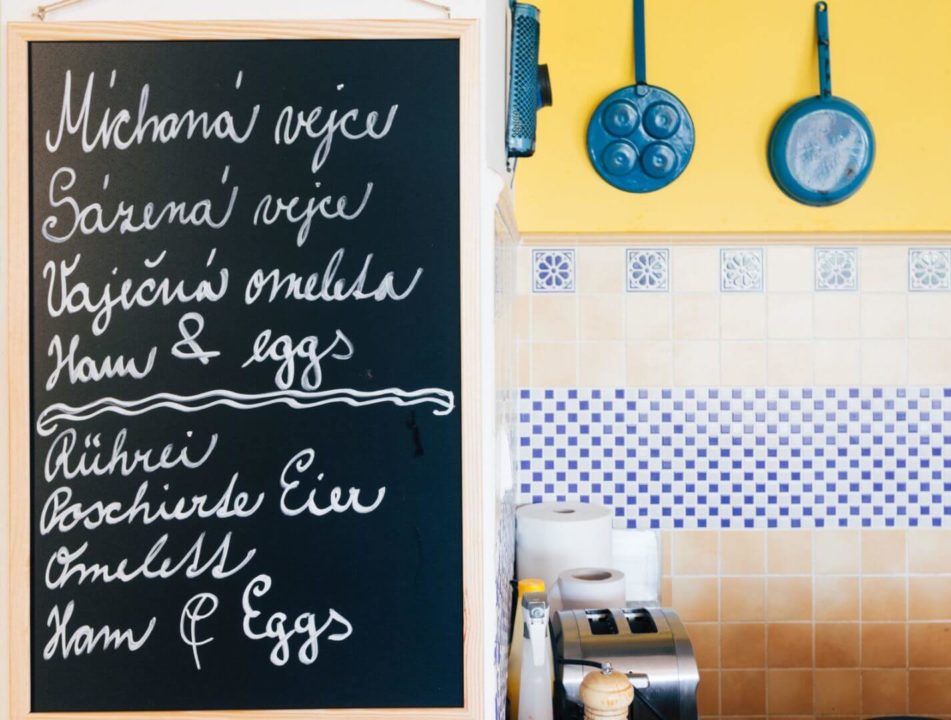 Míchaná vejce
Sázená vejce
Vaječná omeleta
Ham & eggs
Rührei
Poschierte Eier
Omelett
Ham & Eggs